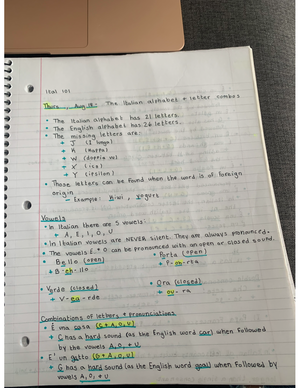 Ital 101
Thurs., Aug 18: The Italian alphabet + letter combos
• The Italian alphabet has 21 letters.
• The English alphabet has 26 letters.
• The missing letters are:
+ J (I lunga)
+ K (kappa)
+ W (doppia vu)
+ X (ics)
+ Y (ipsilon)
• Those letters can be found when the word is of foreign
origin
- Example: Kiwi, yogurt
Vowels
• In Italian there are 5 vowels:
+ A, E, I, O, U
• In Italian vowels are NEVER silent. They are always pronounced.
• The vowels E + O can be pronounced with an open or closed sound.
Bello (open)
+ B-eh-llo
• Porta (open)
+ P-oh-rta
• Verde (closed)
+ V-ea-rde
• Ora (closed)
+ ou-ra
Combinations of letters + pronunciations
• È una casa (C + A, O, U)
+ C has a hard sound (as the English word car) when followed
by the vowels A, O, + U
• E' un gatto (G + A, O, U)
+ G has a hard sound (as the English word goal) when followed by
vowels A, O, + U